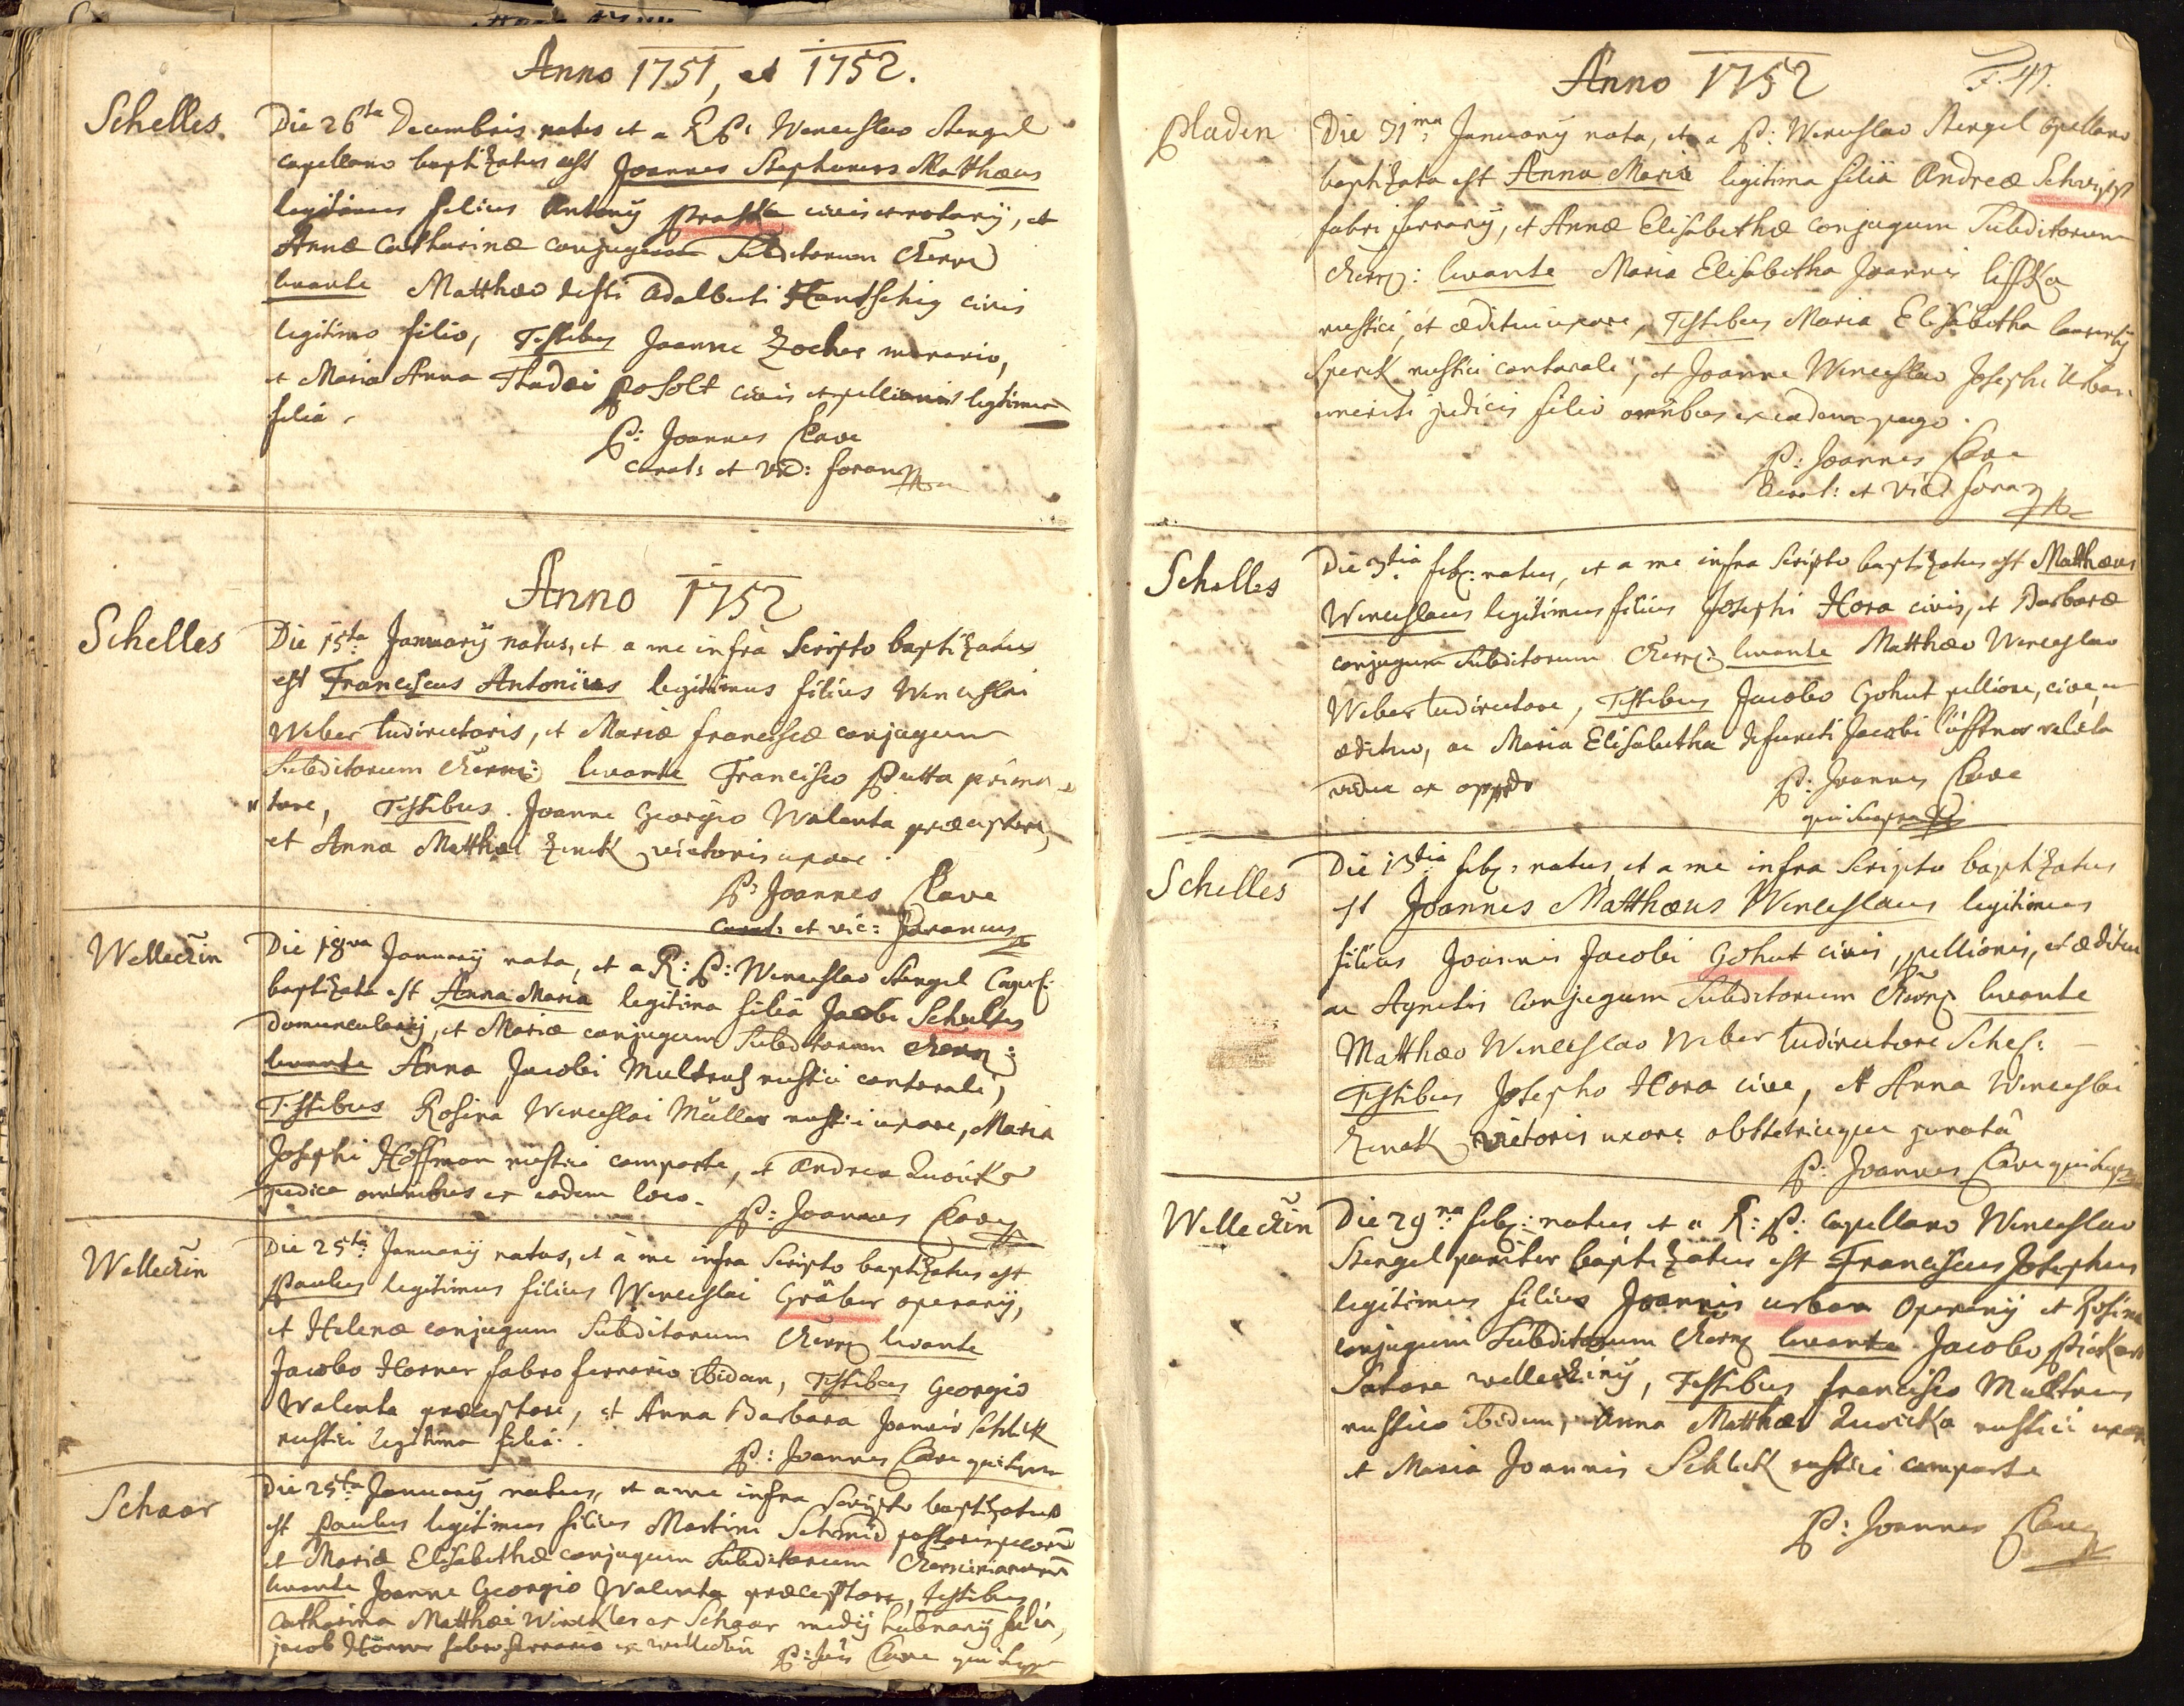 Anno 1751, et 1752.
Schelles.
Die 26ta Decembris natus et a R P: Wenceslao Stengel
capellano baptizatus est Joannes Stephanus Matthæus
legitimus filius Antonÿ Praska civis et notarÿ, et
Annæ Catharinæ conjugum Subditorum
levante Matthæo defti Adalberti Hantschig civis
legitimo filio, Testibus Joanne Zocher murario,
et Maria Anna Thadæi Posolt civis et pellionis legitima
filia.
P: Joannes Clave
Curat: et Vic: foran
Anno 1752
Schelles
Die 15ta January natus, et a me infra Scripto baptizatus
est Franciscus Antonius legitimus filius Wenceslai
Weber ludirectoris, et Mariæ Franciscæ conjugum
Subditorum levante Francisco Putta prima-
tore, Testibus Joanne Georgio Walenta præceptore,
et Anna Matthæi Zenck vietoris uxore.
P: Joannes Clave
Curat: et vic: foraneus
Wellectin
Die 18va January nata, et a R: P: Wenceslao Stengel Capel:
baptizata est Anna Maria legitima filia Jacobi Schultes
domuncularÿ, et Mariæ conjugum Subditorum
levante Anna Jacobi Multrus rustici contorali,
Testibus Rosina Wenceslai Müller rustici uxore, Maria
Josephi Hoffman rustici comparte, et Andrea Zwicka
judice omnibus ex eodem loco.
P: Joannes Clave
Wellectin
Die 25ta January natus, et a me infra Scripto baptizatus est
Paulus legitimus filius Wenceslai Gräber operarÿ,
et Helenæ conjugum Subditorum levante
Jacobo Horner fabro ferrario ibidem, Testibus Georgio
Walenta præceptore, et Anna Barbara Joannis Schlick
rustici legitima filia.
P: Joannes Clave qui supra
Schaar
Die 25ta January natus, et a me infra Scripto baptizatus
est Paulus legitimus filius Martini Schmid pastoris pecorum
et Mariæ Elisabethæ conjugum Subditorum
levante Joanne Georgio Walenta præceptore, testibus
Catharina Matthæi Winckler ex Schaar medÿ hubnarÿ filia,
Jacob Hörner fabro ferrario ex Wellectin P: Clave qui Supra
Anno 1752
F. 47.
Pladen
Die 31ma January nata, et a P: Wenceslao Stengel Capellano
baptizata est Anna Maria legitima filia Andreæ
fabri ferrarÿ, et Annæ Elisabethæ conjugum Subditorum
levante Maria Elisabetha Joannis Lisska
rustici, et æditui uxore, Testibus Maria Elisabetha Laurentÿ
Sperck rustici contorali, et Joanne Wenceslao Josephi Urban
emeriti judicis filio omnibus ex eodem pago.
P: Joannes Clave
Curat: et Vic: foran
Schelles
Die 3tia feb: natus, et a me infra Scripto baptizatus est Matthæus
Wenceslaus legitimus filius Josephi Hora civis, et Barbaræ
conjugum Subditorum levante Matthæo Wenceslao
Weber ludirectore, Testibus Jacobo Gohut pellione, cive, et
ædituo, ac Maria Elisabetha defuncti Jacobi Löffner relicta
vidua ex oppdo
P: Joannes Clave
qui Supra
Schelles
Die 13tia feb: natus et a me infra Scripto baptizatus
est Joannes Matthæus Wenceslaus legitimus
filius Joannis Jacobi Gohut civis, pellionis, et æditui
ac Agnetis conjugum Subditorum levante
Matthæo Wenceslao Weber ludirectore Schel:
Testibus Josepho Hora cive, et Anna Wenceslai
Zenck vietoris uxore obstetriceque jurata
P: Joannes Clave qui supra
Wellectin
Die 29na feb: natus et a R: P: Capellano Wenceslao
Stengel pariter baptizatus est Franciscus Josephus
legitimus filius Joannis Urban Operarÿ et Rosinæ
conjugum Subditorum levante Jacobo Pickart
Satore, Testibus Francisco Multrus
rustico ibidem, Anna Matthæi Zwicka rustici uxore,
et Maria Joannis Schlick rustici comparte
P: Joannes Clave